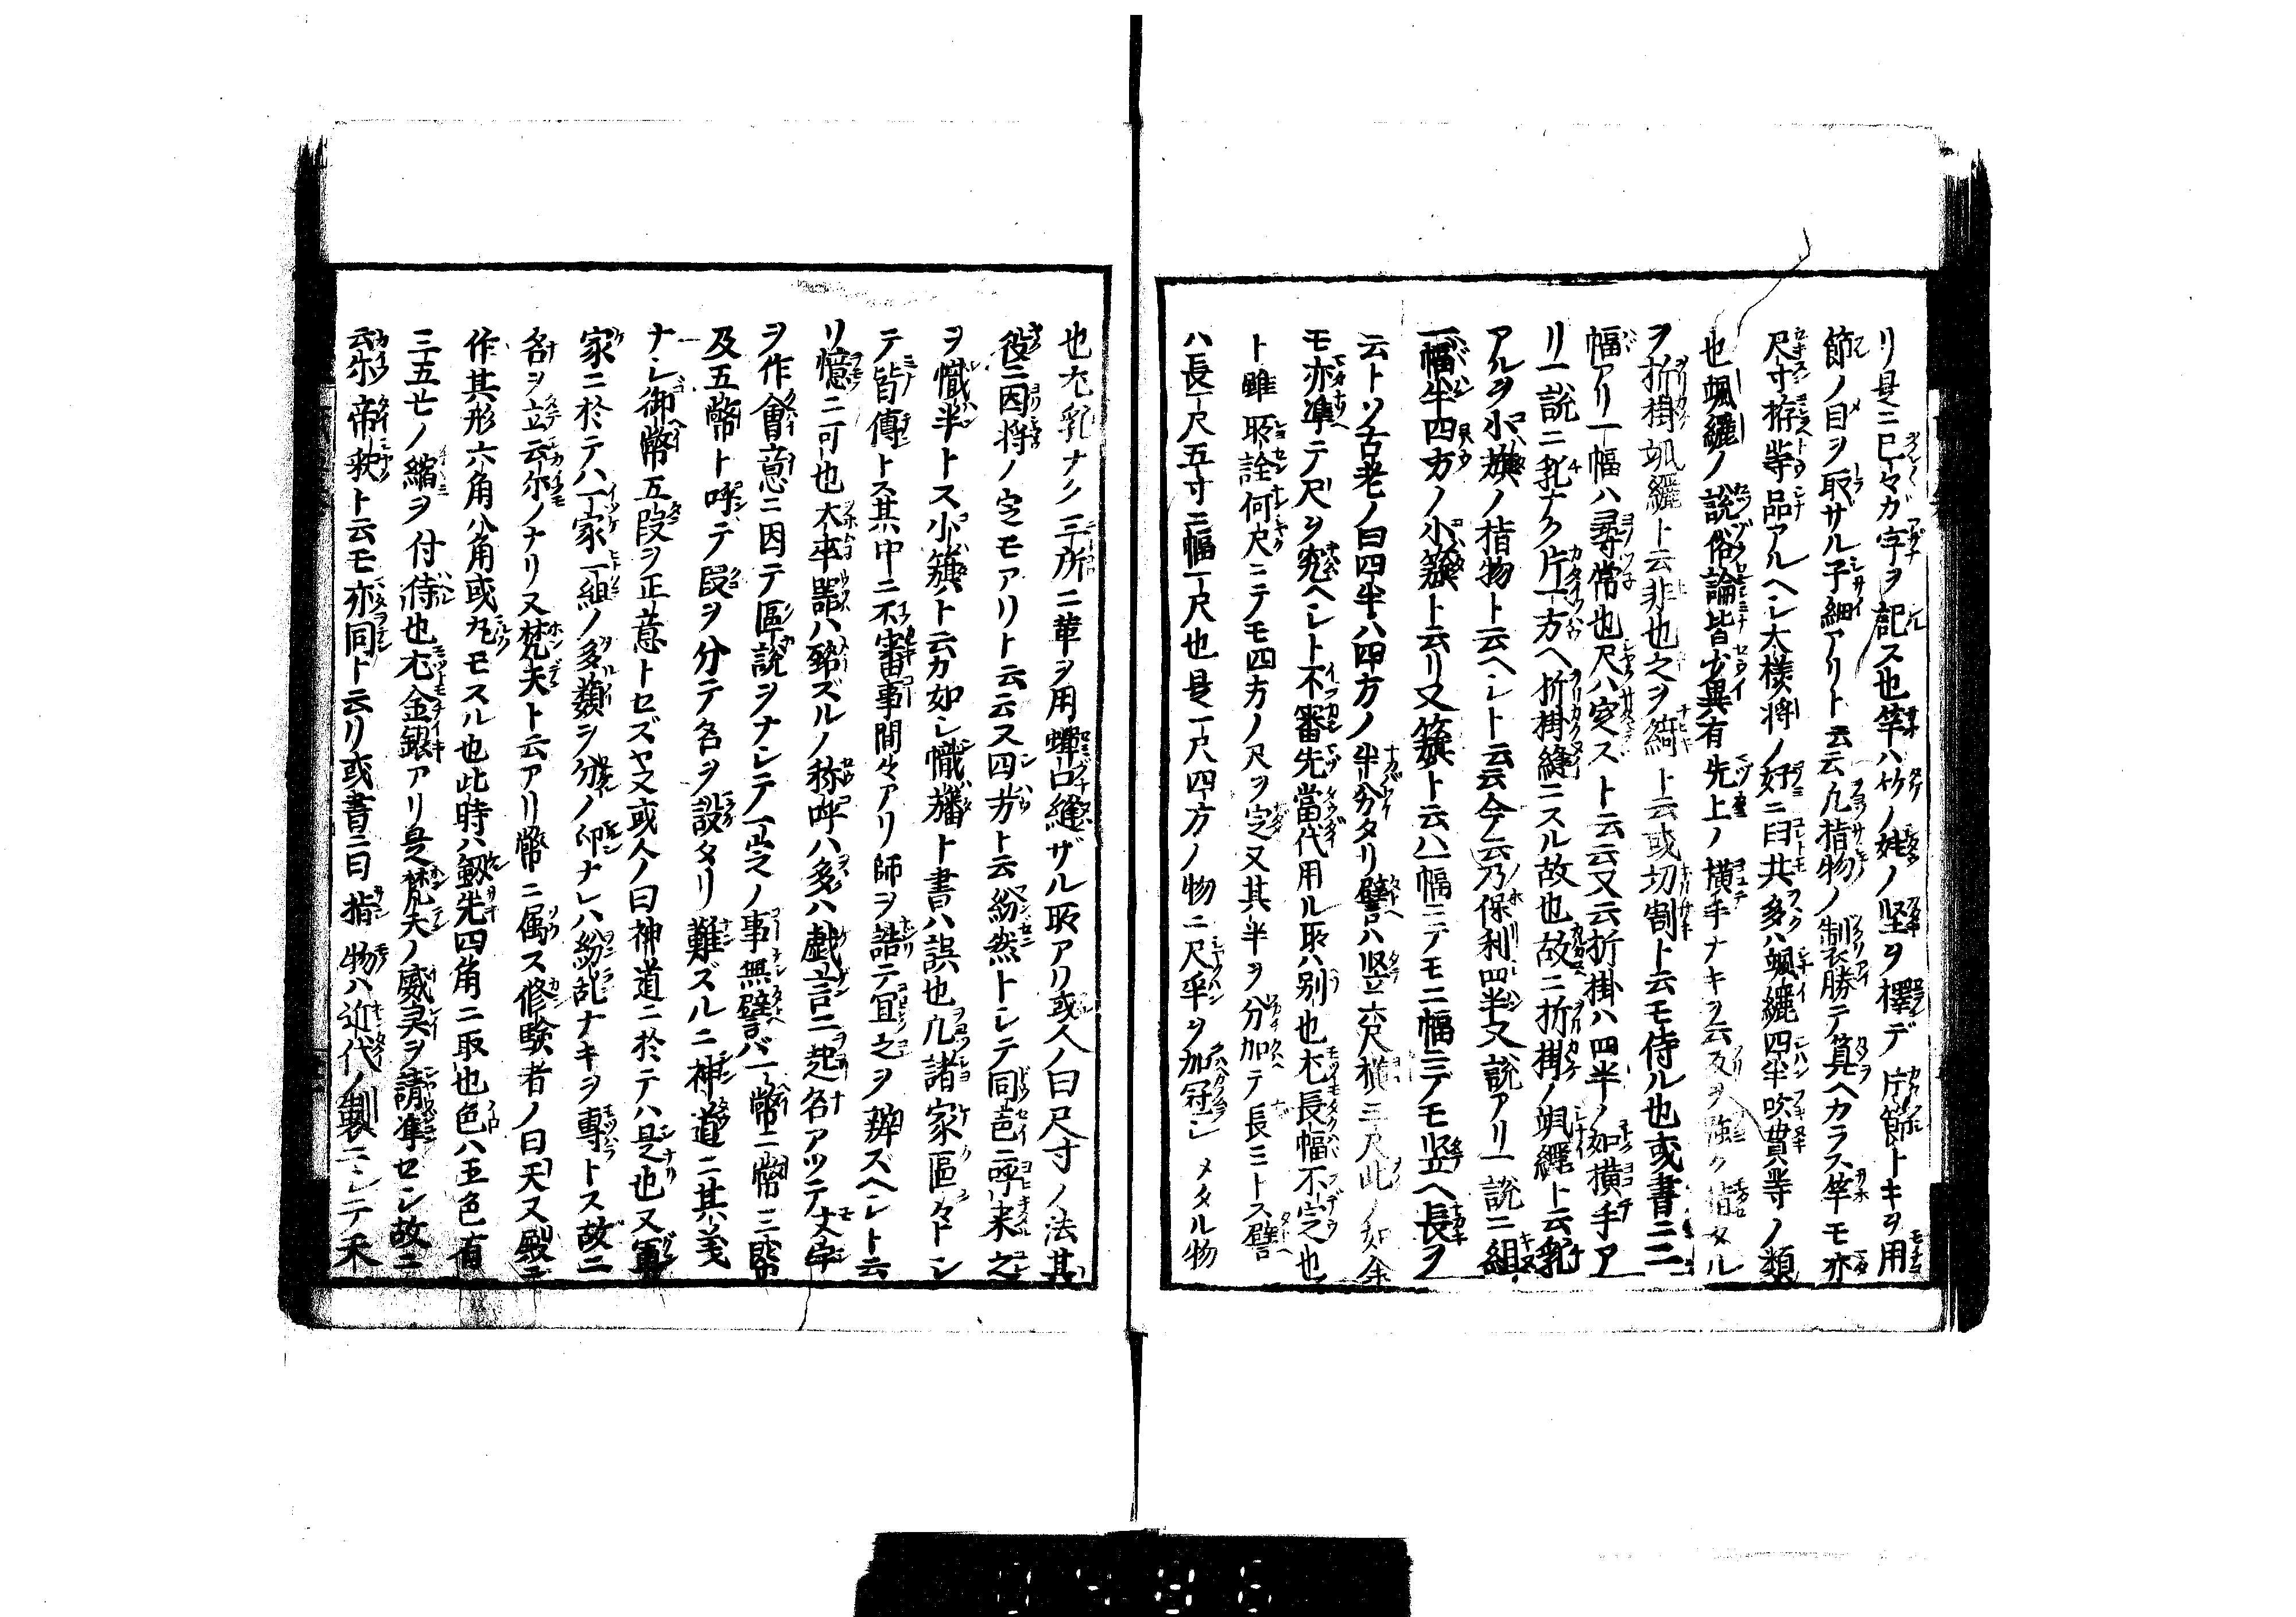 リ是ニ已々ガ字ヲ記ス也竿ハ竹ノ性ノ堅ヲ擇デ片節トキヲ用
節ノ目ヲ取ザル子細アリト云云凡指物ノ制衣勝テ算ヘカラス竿モ亦
尺寸拵等品アルヘシ大様将ノ好ニ因共多ハ颯纚四半吹貫等ノ類
也颯纚ノ説俗論皆少異有先上ノ横手ナキヲ云及ヲ強ク タル
ヲ折掛颯纚ト云非也之ヲ ト云或切割ト云モ侍ル也或書ニ二
幅アリ一幅ハ尋常也尺ハ定ズト云云又云折掛ハ四半ノ如横手ア
リ一説ニ乳ナク片一方ヘ折掛縫ニスル故也故ニ折掛ノ颯纚ト云乳
アルヲ小旗ノ指物ト云ヘシト云云今云乃保利四半又説アリ一説ニ組
一幅半四方ノ小籏ト云リ又籏ト云ハ一幅ニテモ二幅ニテモ竪ヘ長ヲ
云トソ古老ノ曰四半ハ四方ノ半分タリ譬ハ竪六尺横三尺此ノ如余
モ亦準テ尺ヲ究ヘシト不審先當代用ル取ハ別也尤長幅不定也
ト雖取詮何尺ニテモ四方ノ尺ヲ定又其半ヲ分加テ長ミトス譬
ハ長一尺五寸ニ幅一尺也是一尺四方ノ物ニ尺半ヲ加冠シメタル物
也尤乳ナシ三所ニ革ヲ用蝉口縫ザル取アリ或人ノ曰尺寸ノ法其
役ニ因将ノ定モアリト云云又四方ト云紛然トシテ同邑ニ呼来之
ヲ幟半トス小籏ト云カ如シ幟旛ト書ハ誤也凡諸家區々トシ
テ皆傳トス其中ニ不審事間々アリ師ヲ詣テ宜之ヲ辨ズヘシト云
リ憶ニ可也大率器ハ銘ズルノ称呼ハ多ハ戯言ニ起名アツテ文字
ヲ作會意ニ因テ區説ヲナシテ一定ノ事無譬バ一幣二幣三幣
及五幣ト呼テ段ヲ分テ名ヲ設タリ難ズルニ神道ニ其義
ナシ御幣五段ヲ正意トセズヤ又或人ノ曰神道ニ於テハ是也又軍
家ニ於テハ一家一組ノ多類ヲ分ノ印ナレハ紛乱ナキヲ專トス故ニ
各ヲ立云尓ノナリ又梵天ト云アリ幣ニ属ス修験者ノ曰天又殿ニ
作其形六角八角或九モスル也此時ハ劔先四角ニ取也色ハ五色有
三五七ノ縮ヲ付侍也尤金銀アリ是梵天ノ威灵ヲ請準セシ故ニ
云尓帝釈ト云モ亦同ト云リ或書ニ曰指物ハ近代ノ製ニシテ天